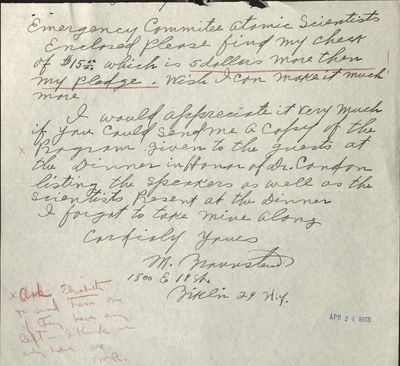 Emergency Commitee Atomic Scientists
Enclosed Please find my check
of $15 00/xx which is 5 dollars more then
my pledge. Wish I can make it much
more
I would appreciate it very much
if you could send me a copy of the
Program given to the guests at
the Dinner in Honor of Dr. Condon
listing the speakers as well as the
Scientists Present at the Dinner
I forgot to take mine along
Cordialy Yours
M.
1800 E 18 St.
Bklin 29 N.Y.
x Ask Elizabeth
to send them one
if they have any
left – I think we
only have one.
APR 24 RECD